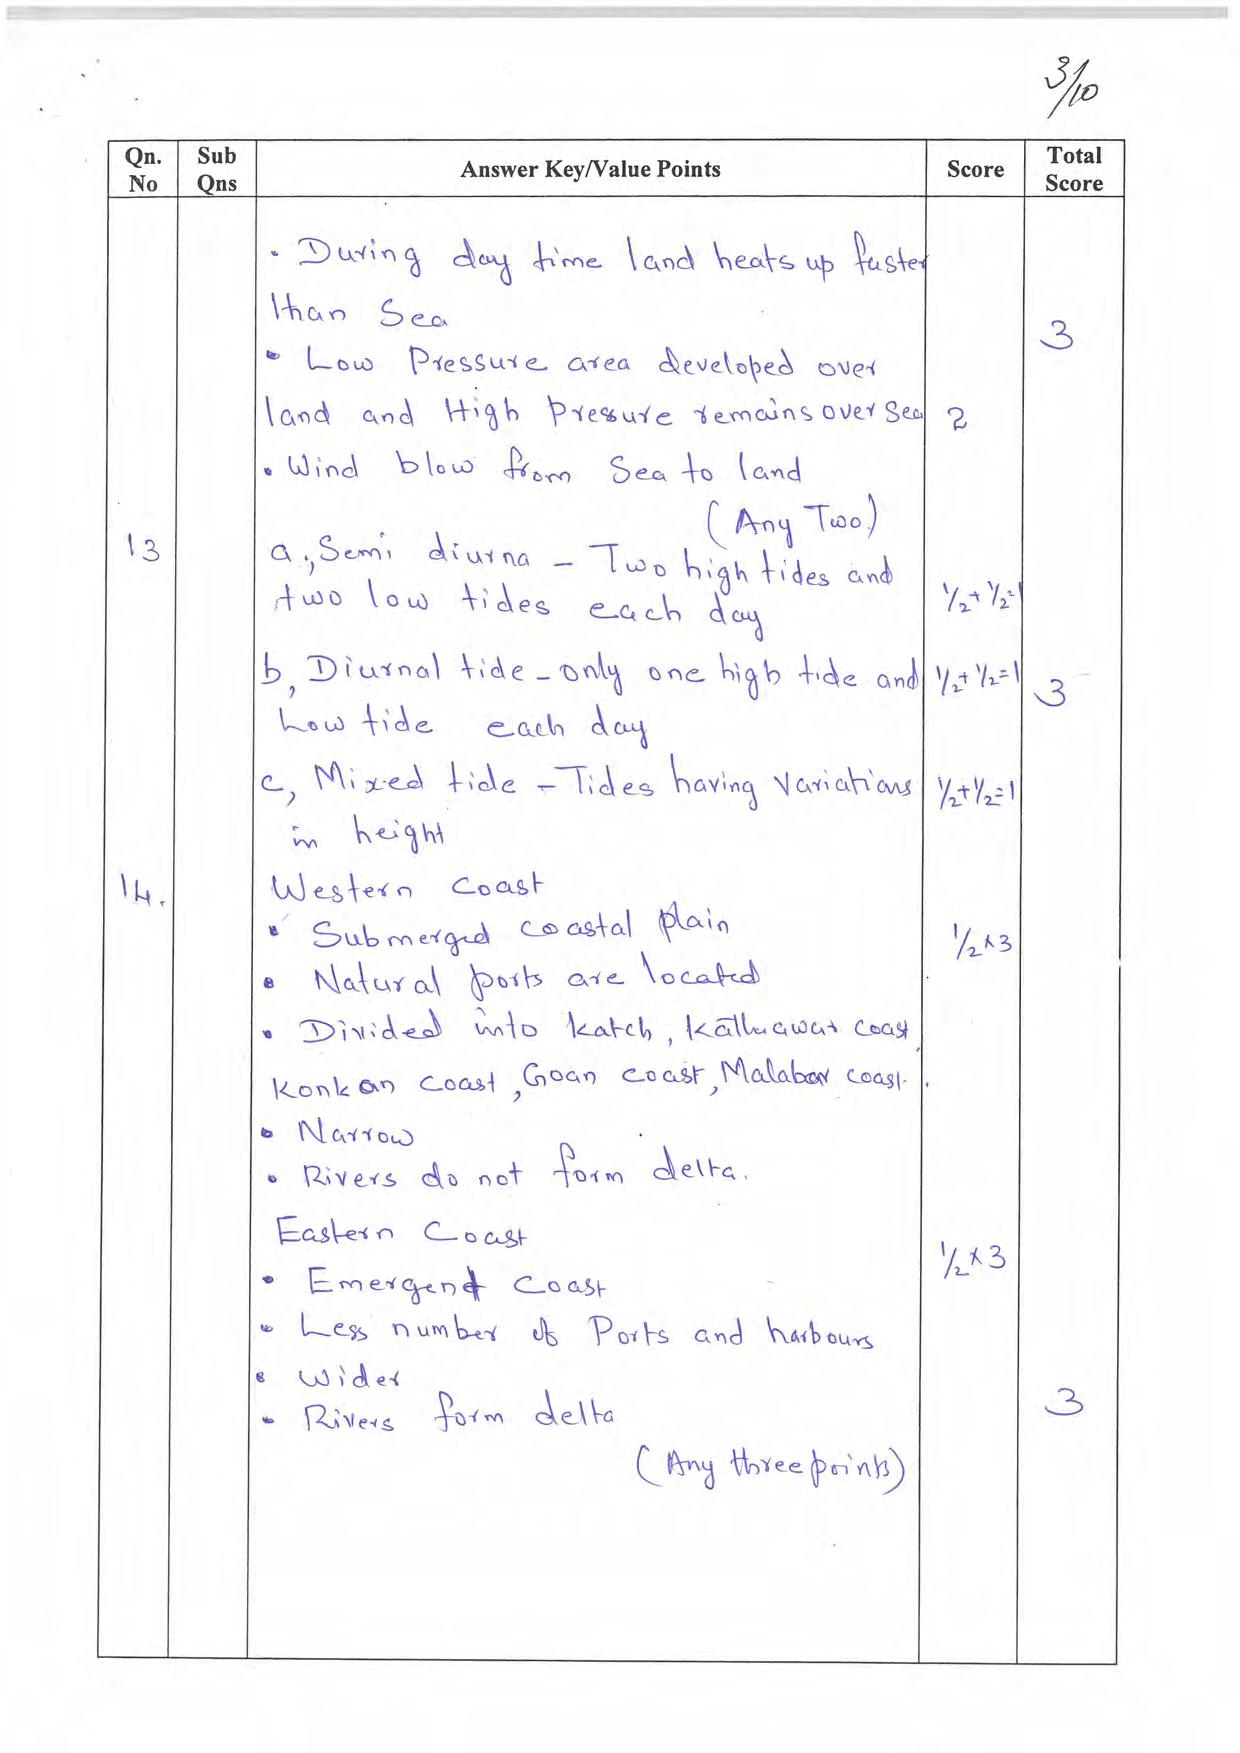 3/10
Qn. No
Sub Qns
Answer Key/Value Points
Score
Total Score
• During day time land heats up faster
than Sea
3
• Low Pressure area developed over
land and High Pressure remains over Sea 2
• Wind blow from Sea to land
(Any Two)
13 a, Semi diurna – Two high tides and
two low tides each day 1/2+1/2=1
b, Diurnal tide – only one high tide and 1/2+1/2=1 3
Low tide each day
c, Mixed tide – Tides having variations 1/2+1/2=1
in height
14. Western Coast
• Submerged coastal plain 1/2×3
• Natural ports are located
• Divided into Katch, Kathuawar coast
Konkan coast, Goan coast, Malabar coast.
• Narrow
• Rivers do not form delta.
Eastern Coast 1/2×3
• Emergent Coast
• Less number of Ports and harbours
• Wider
• Rivers form delta 3
(Any three points)